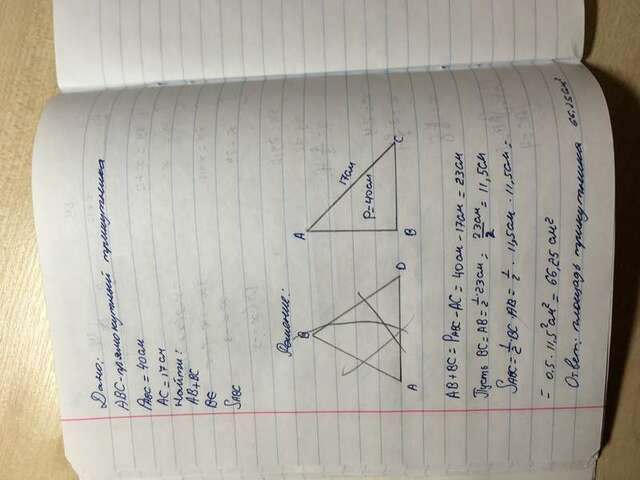 Дано:
ABC - прямокутный трикутника
P_ABC = 40см
AC = 17см
Найти:
AB + BC
BC
S_ABC
Решение:
B
A
D
A
17см
C
P=40см
B
AB + BC = P_ABC - AC = 40см - 17см = 23см
Пусть BC = AB = 1/2 · 23см = 23см/2 = 11,5см
S_ABC = 1/2 BC · AB = 1/2 · 11,5см · 11,5см =
= 0.5 · 11,5² см² = 66,25 см²
Ответ: площадь трикутника 66.25 см²